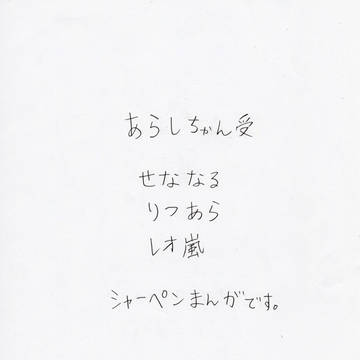 あらしちゃん受
せななる
りつあら
レオ嵐
シャーペンまんがです。